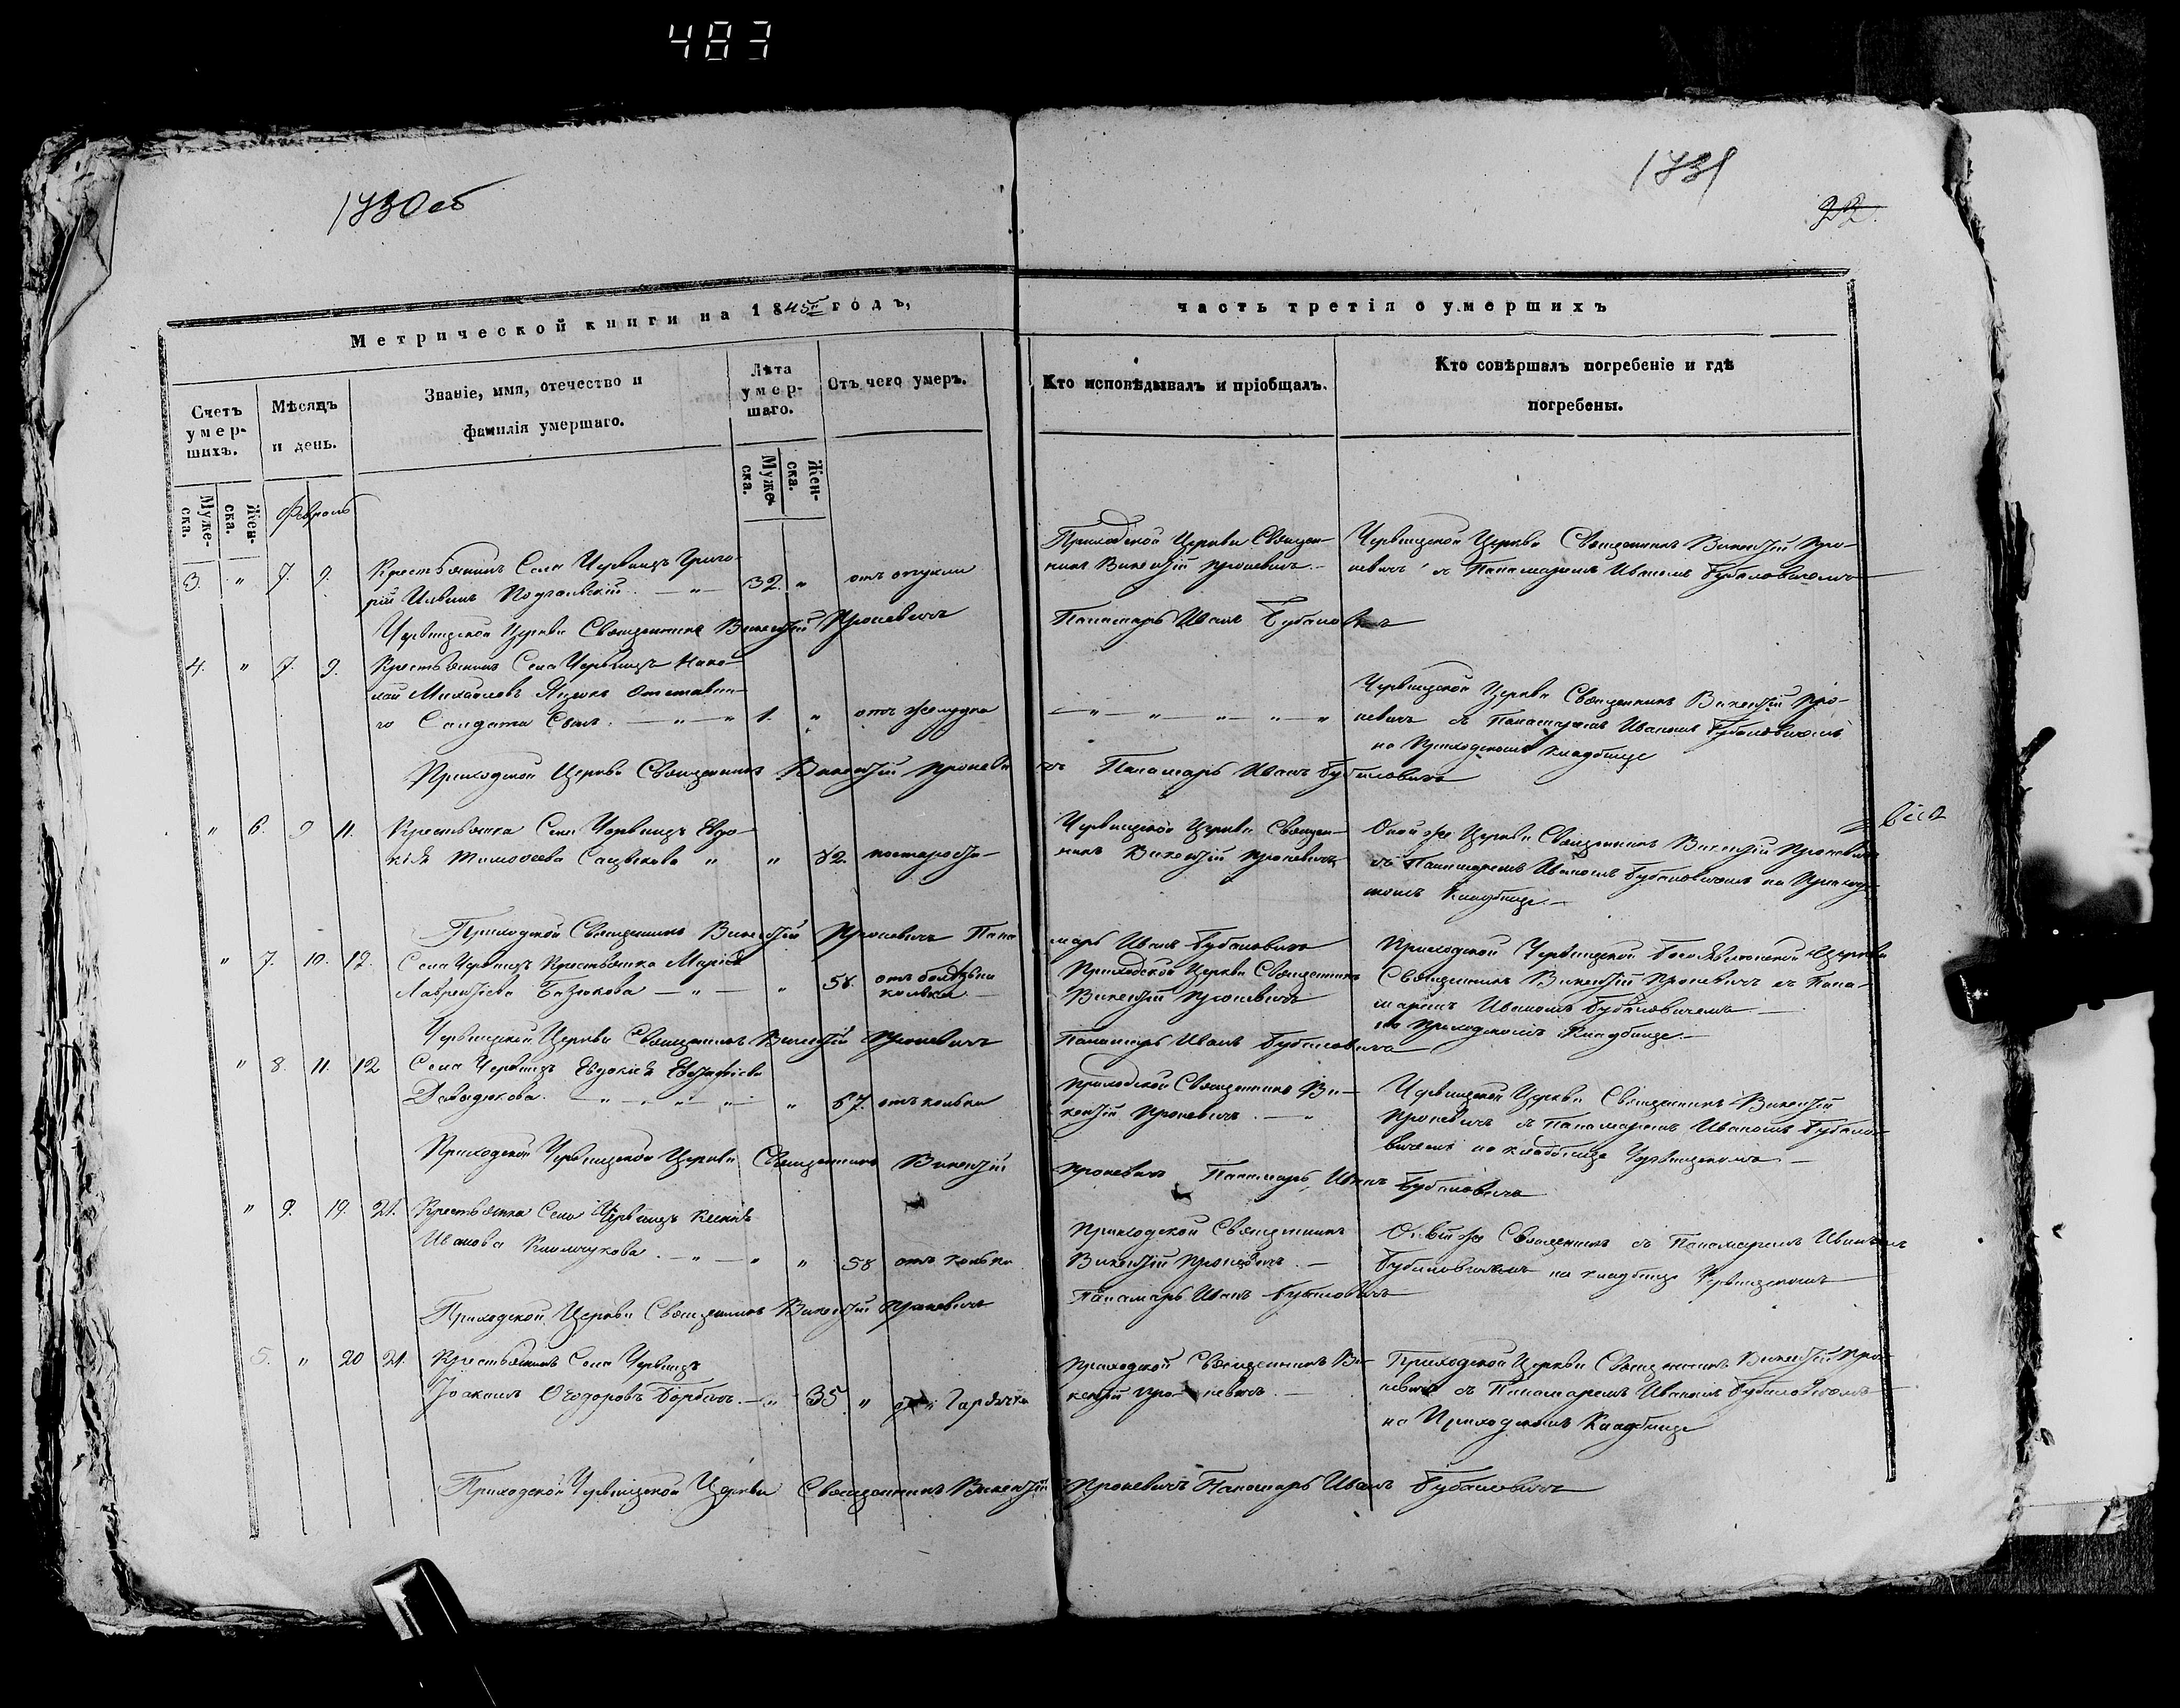 483
1730об
1731
22.
Метрической книги на 1845й годъ,
часть третія о умершихъ
Счетъ умер-шихъ.
Мѣсяцъ и день.
Званіе, имя, отечество и фамилія умершаго.
Лѣта умер-шаго.
Отъ чего умеръ.
Кто исповѣдывалъ и пріобщалъ.
Кто совѣршалъ погребеніе и гдѣ погребены.
Муже-ска.
Жен-ска.
Муже-ска.
Жен-ска.
Февраль
3. " 7. 9. Крестьянинъ Села Червищъ Григо-
рій 32. " отъ опухли
Приходской Церкви Священ-
никъ Викентій Проневичъ.
Червищской Церкви Священникъ Викентій Про-
невичъ съ Панамаремъ Иваномъ Бубановичемъ
Червищской Церкви Священникъ Викентій Проневичъ
Панамарь Иванъ Бубановичъ
4. " 7. 9. Крестьянинъ Села Червищъ Нико-
лай Михайловъ Яцукъ Отставна-
го Салдата Сынъ. — " — " 1. " отъ желудка
— " — " — " — " — "
Червищской Церкви Священникъ Викентій Про-
невичъ съ Панамаремъ Иваномъ Бубановичемъ
на Приходскомъ Кладбище
Приходской Церкви Священникъ Викентій Проневи
чъ Панамарь Иванъ Бубановичъ
" 6. 9 11. Крестьянка Села Червищъ Евдо-
кія Тимофеева " " 82
Червищской Церкви Священ-
никъ Викентій Проневичъ
Оной же Церкви Священникъ Викентій Проневичъ
съ Панамаремъ Иваномъ Бубановичемъ на Приход-
Кладбище.—
Приходской Священникъ Викентій Проневичъ Пана
марь Иванъ Бубановичъ
" 7. 10. 12. Села Червищъ Крестьянка Марія
Лаврентіева Базюкова — " — " 58. отъ болѣзни
колики.—
Приходской Церкви Священникъ
Викентій Проневичъ
Приходской Червищской Церкви
Священникъ Викентій Проневичъ съ Пана-
маремъ Иваномъ Бубановичемъ.—
на Приходскомъ Кладбище.—
Червищской Церкви Священникъ Викентій Проневичъ
Панамарь Иванъ Бубановичъ
" 8. 11. 12 Села Червищъ Евдокія
Давидюкова. " 67. отъ кольки
Приходской Священникъ Ви-
кентій Проневичъ.— "
Червищской Церкви Священникъ Викентій
Проневичъ съ Панамаремъ Иваномъ Бубано-
вичемъ на кладбище Червищскомъ —
Приходской Червищской Церкви Священникъ Викентій
Проневичъ Панамарь Иванъ Бубановичъ
" 9. 19. 21. Крестьянка Села Червищъ Ксенія
Иванова Климчукова. — " — " " 58 отъ кольки
Приходской Священникъ
Викентій Проневичъ.—
Священникъ съ Панамаремъ Иваномъ
Бубановичемъ на кладбище Червищскомъ
Приходской Церкви Священникъ Викентій Проневичъ
Панамарь Иванъ Бубановичъ
5. " 20 21. Крестьянинъ Села Червищъ
Іоакимъ Ѳеодоровъ — " 35 " отъ Гарячки
Приходской Священникъ Ви-
кентій Проневичъ.—
Приходской Церкви Священникъ Викентій Про-
невичъ съ Панамаремъ Иваномъ Бубановичемъ
на Приходскомъ Кладбище
Приходской Червищской Церкви Священникъ Викентій
Проневичъ Панамарь Иванъ Бубановичъ